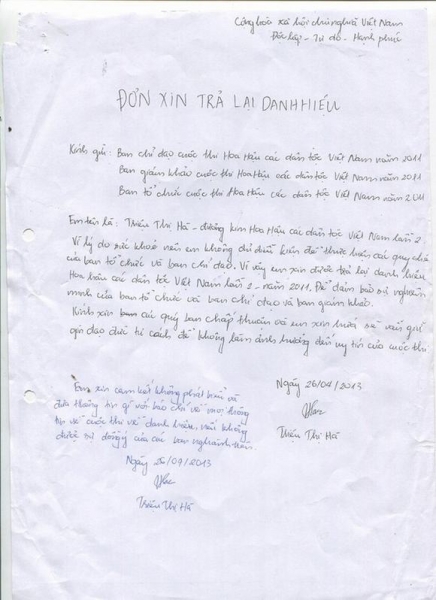 Cộng hòa xã hội chủ nghĩa Việt Nam
Độc lập - Tự do - Hạnh phúc
ĐƠN XIN TRẢ LẠI DANH HIỆU
Kính gửi: Ban chỉ đạo cuộc thi Hoa Hậu các dân tộc Việt Nam năm 2011
Ban giám khảo cuộc thi Hoa Hậu các dân tộc Việt Nam năm 2011
Ban tổ chức cuộc thi Hoa Hậu các dân tộc Việt Nam năm 2011
Em tên là: Triệu Thị Hà - đương kim Hoa Hậu các dân tộc Việt Nam lần 2
Vì lý do sức khoẻ nên em không đủ điều kiện để thực hiện các quy chế
của ban tổ chức và ban chỉ đạo. Vì vậy em xin được trả lại danh hiệu
Hoa hậu các dân tộc Việt Nam lần 2 - năm 2011. Để đảm bảo sự nghiêm
minh của ban tổ chức và ban chỉ đạo và ban giám khảo.
Kính xin các quý ban chấp thuận và em xin hứa sẽ vẫn giữ
gìn đạo đức tư cách để không làm ảnh hưởng đến uy tín của cuộc thi
Ngày 26/04/2013
Triệu Thị Hà
Em xin cam kết không phát biểu và
đưa thông tin gì với báo chí về mọi thông
tin về cuộc thi và danh hiệu nếu không
được sự đồng ý của các ban
Ngày 26/09/2013
Triệu Thị Hà